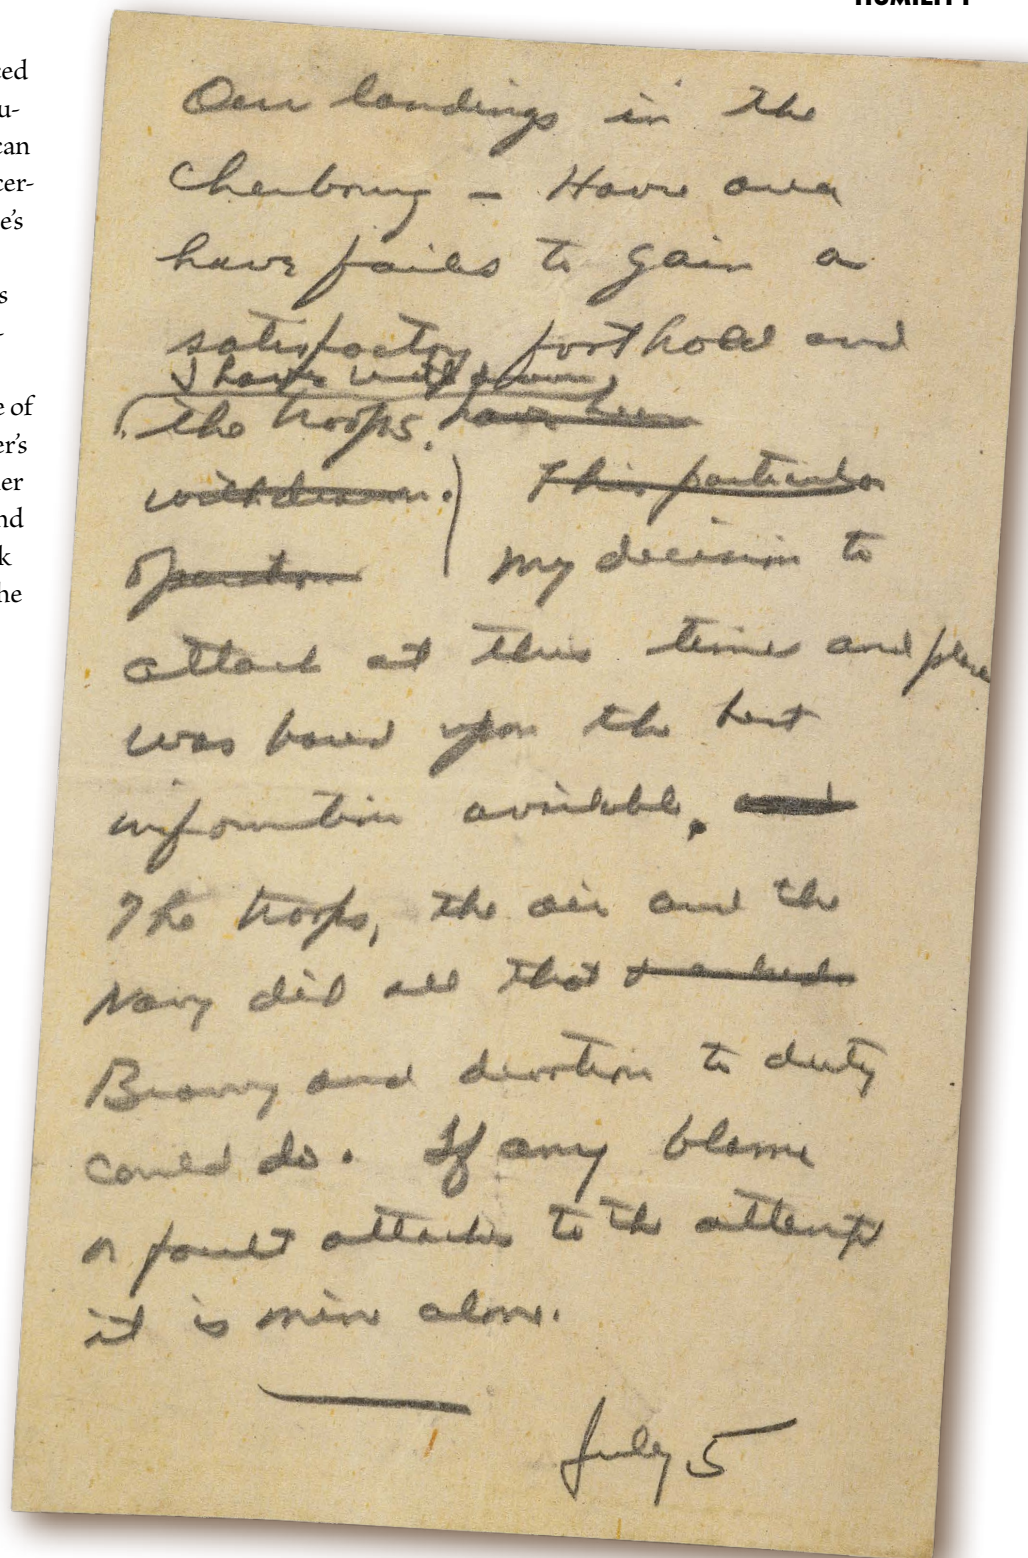 HUMILITY
ced
u-
can
cer-
e's
s
-
e of
er's
er
nd
k
he
Our landings in the
Cherbourg - Havre area
have failed to gain a
satisfactory foothold and
I have withdrawn
the troops. have been
withdrawn. This particular
operation My decision to
attack at this time and place
was based upon the best
information available. and
The troops, the air and the
Navy did all that
Bravery and devotion to duty
could do. If any blame
or fault attaches to the attempt
it is mine alone.
July 5